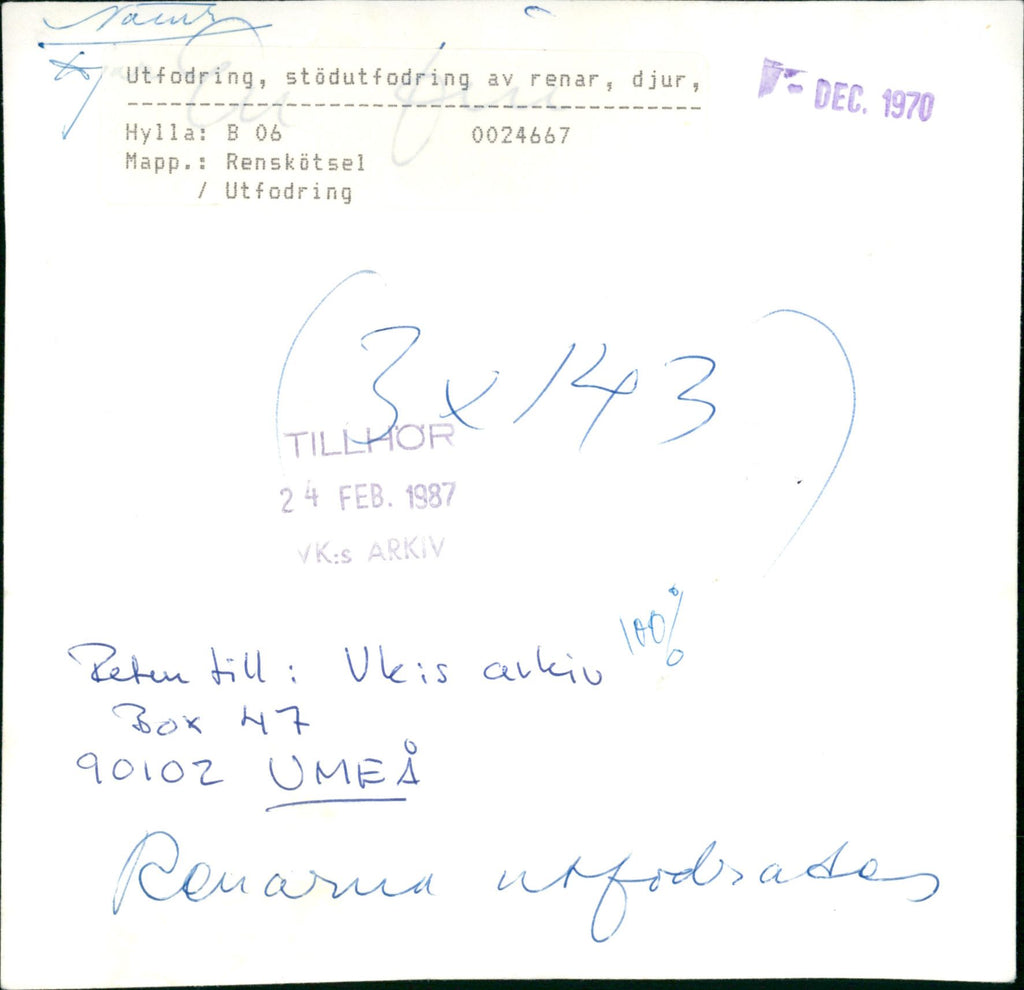 Natur
Utfodring, stödutfodring av renar, djur,
DEC. 1970
Hylla: B 06 0024667
Mapp.: Renskötsel
/ Utfodring
(3 x 143)
TILLHÖR
24 FEB. 1987
VK:s ARKIV
100%
Retur till: Vk:s arkiv
Box 47
90102 UMEÅ
Renarna utfodrades